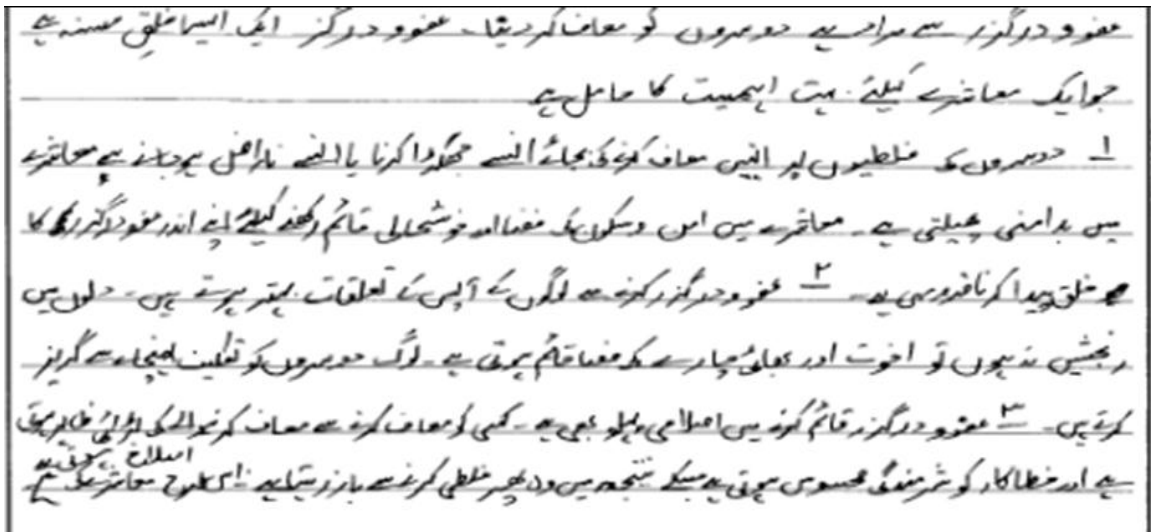 عفو و درگزر سے مراد ہے دوسروں کو معاف کر دینا۔ عفو و درگزر ایک ایسا خلقِ حسنہ ہے
جو ایک معاشرے کیلئے بہت اہمیت کا حامل ہے
۱ دوسروں کی غلطیوں پر انہیں معاف کرنے کی بجائے السے جھگڑا کرنا یا النے ناراض ہو جانے پہ معاشرے
میں بدامنی پھیلتی ہے۔ معاشرے میں امن و سکون کی فضا اور خوشحالی قائم رکھنے کیلئے اپنے اندر عفو و درگزر کا
خلق پیدا کرنا ضروری ہے۔ ۲ عفو و درگزر کرنے سے لوگوں کے آپس کے تعلقات بہتر ہوتے ہیں۔ دلوں میں
رنجشیں نہ ہوں تو اخوت اور بھائی چارے کی فضا قائم ہوتی ہے۔ لوگ دوسروں کو تکلیف پہنچانے سے گریز
کرتے ہیں۔ ۳ عفو و درگزر قائم کرنے میں اصلاحی پہلو بھی ہے۔ کسی کو معاف کرنے سے معاف کرنے والے کی بڑائی ظاہر ہوتی
ہے اور خطا کار کو شرمندگی محسوس ہوتی ہے جسکے نتیجہ میں وہ پھر غلطی کرنے سے باز رہتا ہے۔ اس طرح معاشرے کی اصلاح ہوتی ہے